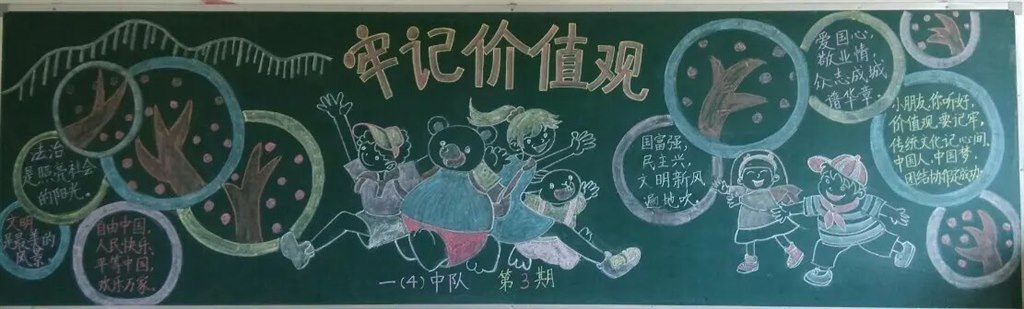 牢记价值观
法治
是照亮社会
的阳光。
文明
是最美的
风景
自由中国，
人民快乐，
平等中国，
欢乐万家。
一(4)中队 第3期
国富强，
民主兴，
文明新风
遍地吹。
爱国心，
敬业情，
众志成城
谱华章。
小朋友，你听好，
价值观，要记牢，
传统文化记心间，
中国人、中国梦，
团结协作定成功。